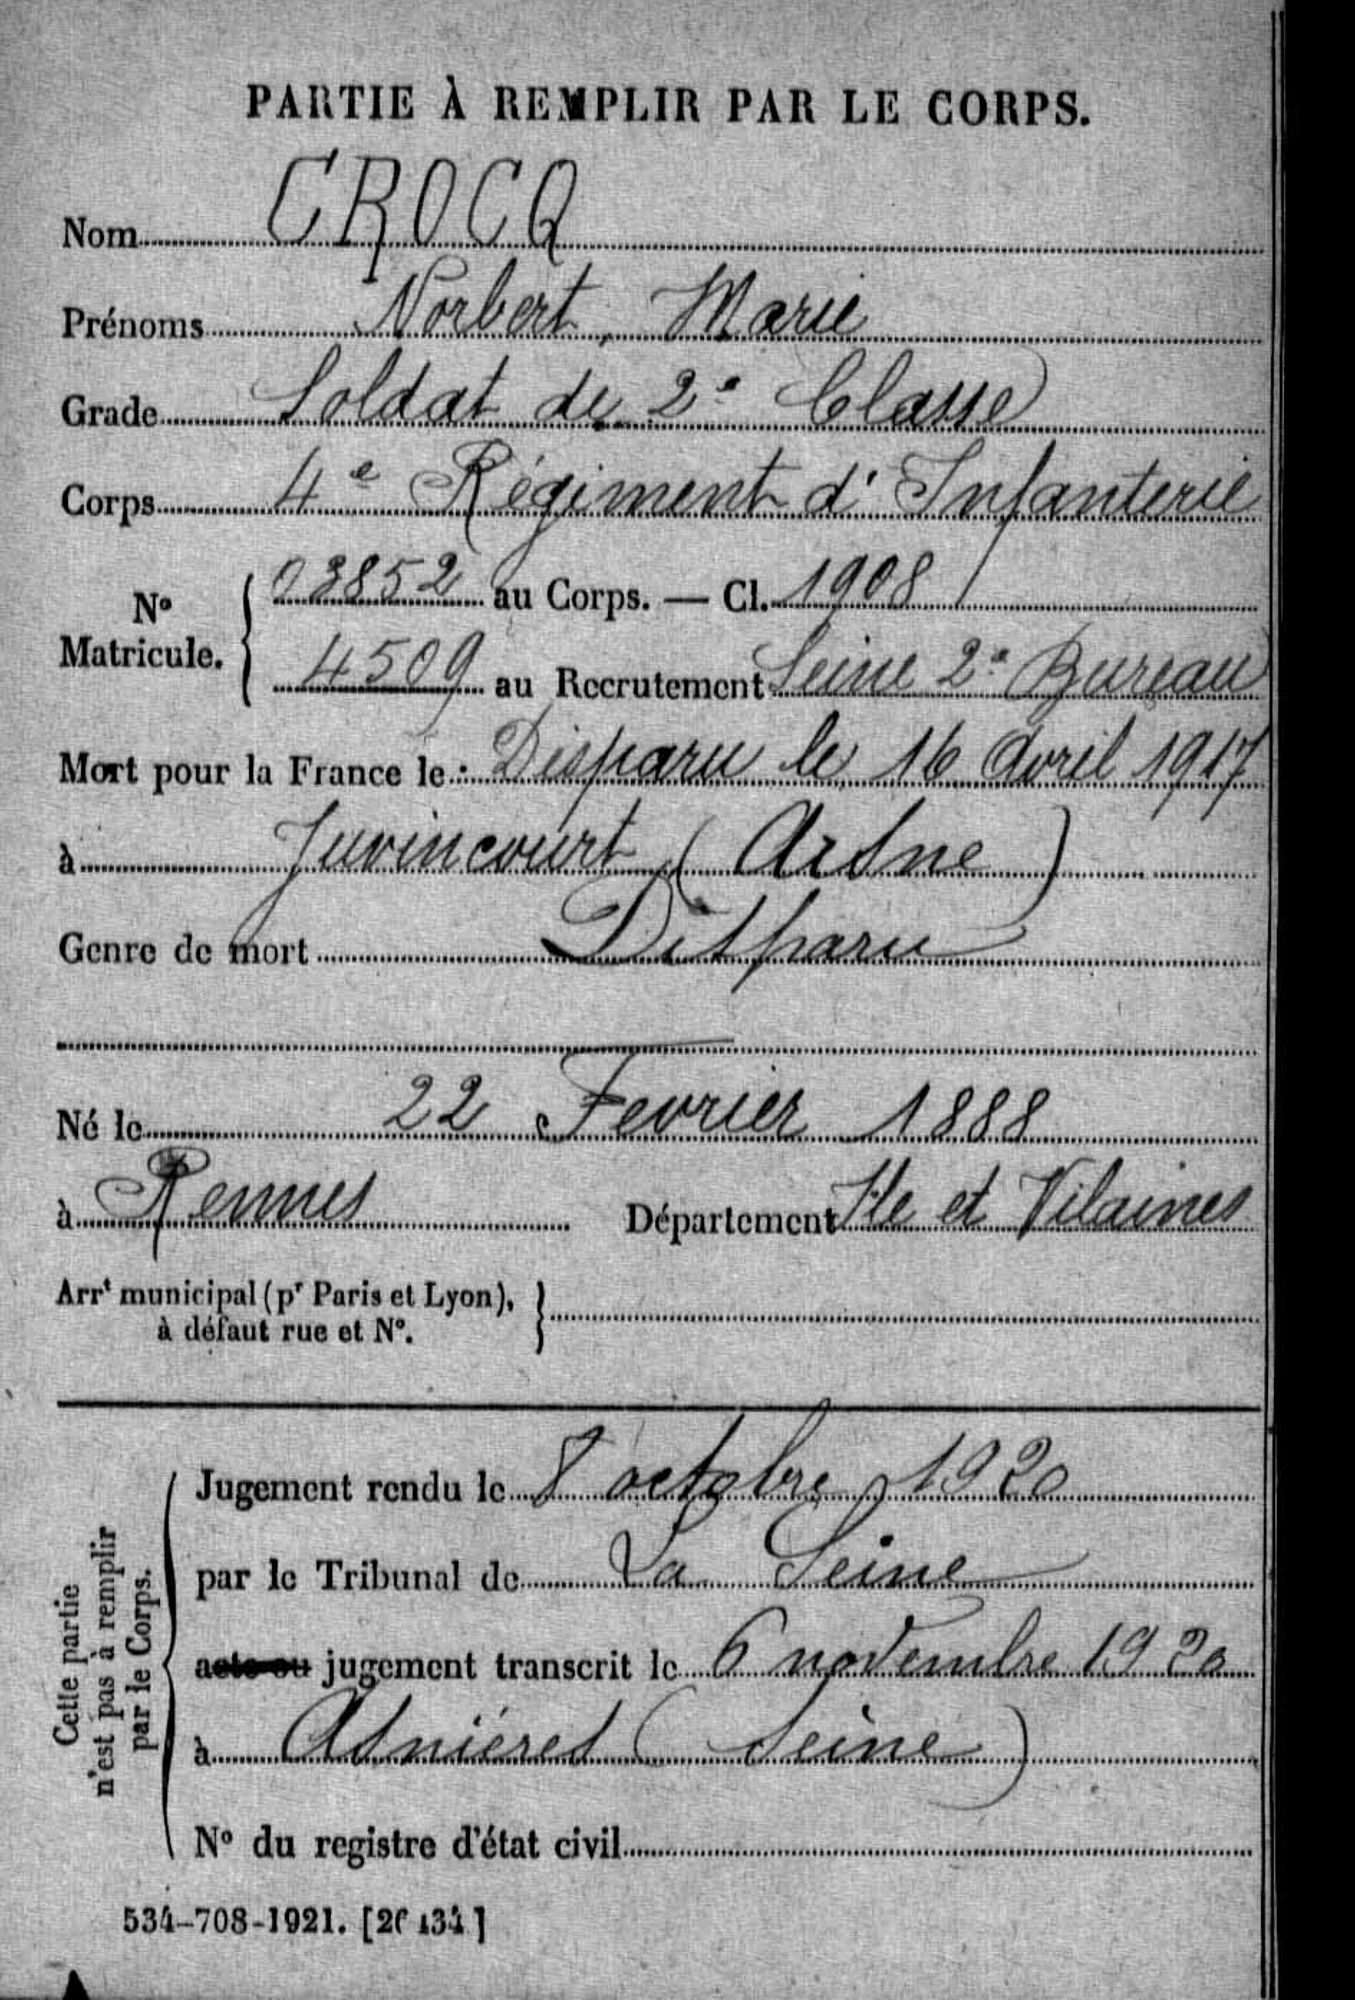 PARTIE À REMPLIR PAR LE CORPS.
Nom CROCQ
Prénoms Norbert, Marie
Grade Soldat de 2e Classe
Corps 4e Régiment d'Infanterie
No Matricule. { 03852 au Corps. — Cl. 1908
4509 au Recrutement Seine 2e Bureau
Mort pour la France le : Disparu le 16 Avril 1917
à Juvincourt (Aisne)
Genre de mort Disparu
Né le 22 Fevrier 1888
à Rennes Département Ile et Vilaines
Arrt municipal (pr Paris et Lyon),
à défaut rue et No. }
Cette partie
n'est pas à remplir
par le Corps.
Jugement rendu le 8 octobre 1920
par le Tribunal de La Seine
acte ou jugement transcrit le 6 novembre 1920
à Asnières (Seine)
No du registre d'état civil
534-708-1921.